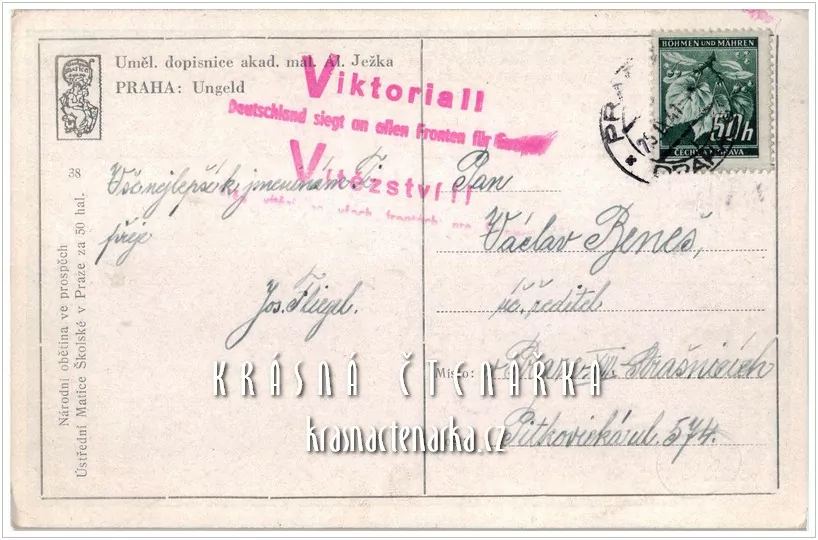 Uměl. dopisnice akad. mal. Al. Ježka
PRAHA: Ungeld
Viktoria!!
Deutschland siegt an allen Fronten für Europa
Vítězství!!
vítězí na všech frontách pro
BÖHMEN UND MÄHREN
50h
ČECHY A MORAVA
38
Národní obětina ve prospěch
Ústřední Matice Školské v Praze za 50 hal.
Vše nejlepší k jmeninám Ti
přeje
Jos. Fliegel.
Pan
Václav Beneš,
úč. ředitel
Místo:
v Praze XIII. Strašnicích
Pitkovická ul. 574.
KRÁSNÁ ČTENÁŘKA
krasnactenarka.cz